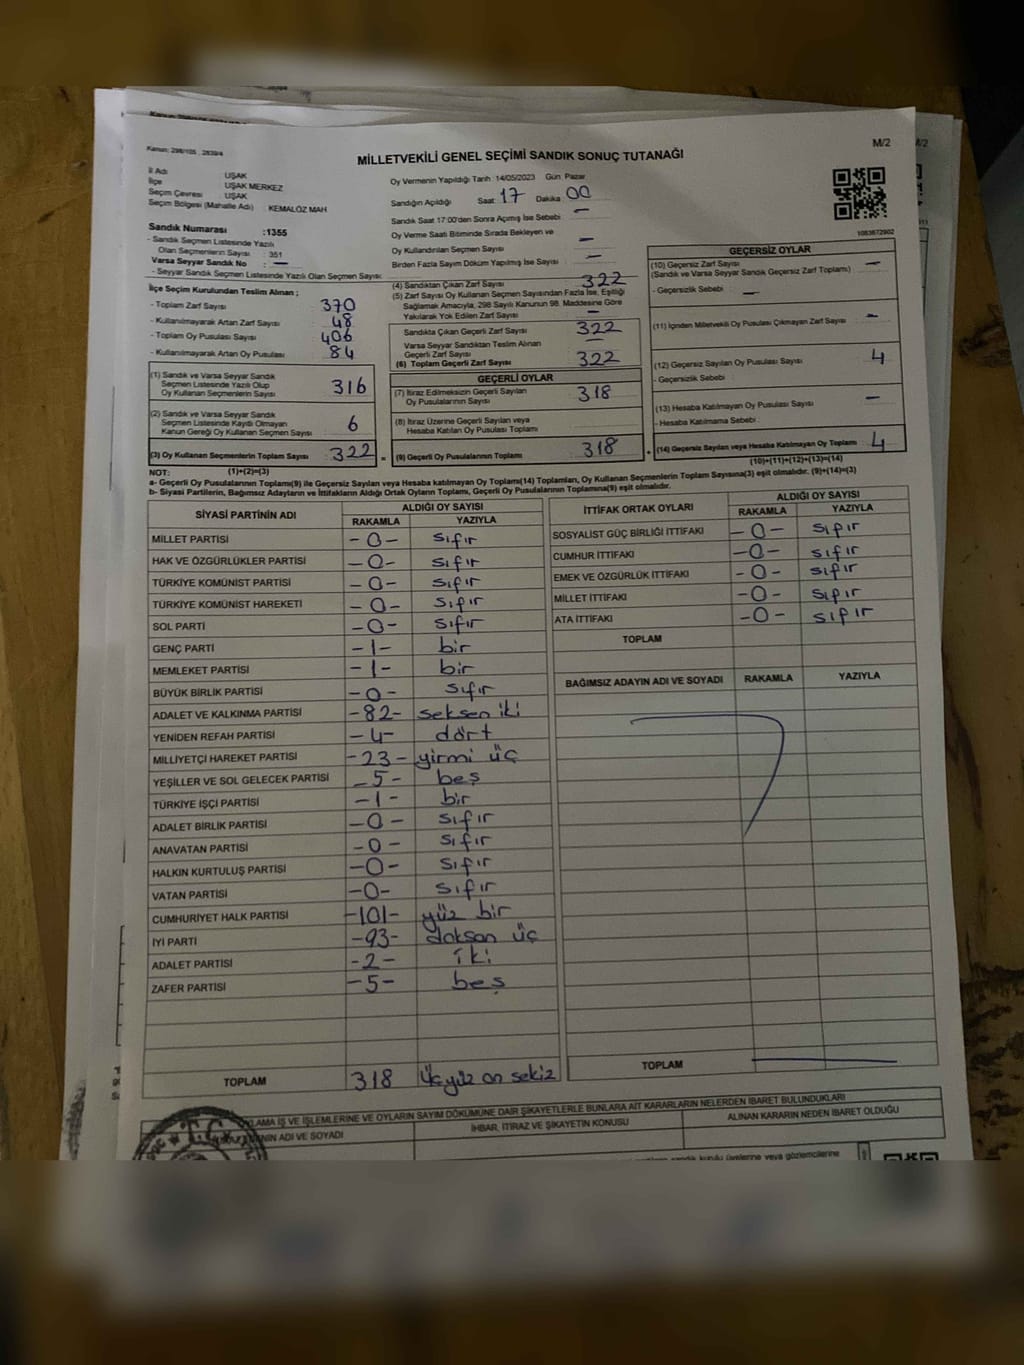 Kanun: 298/105 , 2839/4
M/2
MİLLETVEKİLİ GENEL SEÇİMİ SANDIK SONUÇ TUTANAĞI
İl Adı UŞAK
İlçe UŞAK MERKEZ
Seçim Çevresi UŞAK
Seçim Bölgesi (Mahalle Adı) : KEMALÖZ MAH
Sandık Numarası :1355
- Sandık Seçmen Listesinde Yazılı
Olan Seçmenlerin Sayısı : 351
Varsa Seyyar Sandık No : —
- Seyyar Sandık Seçmen Listesinde Yazılı Olan Seçmen Sayısı:
Oy Vermenin Yapıldığı Tarih :14/05/2023 Gün: Pazar
Sandığın Açıldığı Saat: 17 Dakika 00
Sandık Saat 17:00'den Sonra Açımış İse Sebebi : —
Oy Verme Saati Bitiminde Sırada Bekleyen ve
Oy Kullandırılan Seçmen Sayısı : —
Birden Fazla Sayım Döküm Yapılmış İse Sayısı : —
1083672902
İlçe Seçim Kurulundan Teslim Alınan ;
- Toplam Zarf Sayısı : 370
- Kullanılmayarak Artan Zarf Sayısı : 48
- Toplam Oy Pusulası Sayısı : 406
- Kullanılmayarak Artan Oy Pusulası : 84
(1) Sandık ve Varsa Seyyar Sandık
Seçmen Listesinde Yazılı Olup
Oy Kullanan Seçmenlerin Sayısı : 316
(2) Sandık ve Varsa Seyyar Sandık
Seçmen Listesinde Kaydı Olmayan
Kanun Gereği Oy Kullanan Seçmen Sayısı : 6
(3) Oy Kullanan Seçmenlerin Toplam Sayısı : 322
(4) Sandıktan Çıkan Zarf Sayısı : 322
(5) Zarf Sayısı Oy Kullanan Seçmen Sayısından Fazla İse, Eşitliği
Sağlamak Amacıyla, 298 Sayılı Kanunun 98. Maddesine Göre
Yakılarak Yok Edilen Zarf Sayısı : —
Sandıkta Çıkan Geçerli Zarf Sayısı : 322
Varsa Seyyar Sandıktan Teslim Alınan
Geçerli Zarf Sayısı : —
(6) Toplam Geçerli Zarf Sayısı : 322
GEÇERLİ OYLAR
(7) İtiraz Edilmeksizin Geçerli Sayılan
Oy Pusulalarının Sayısı : 318
(8) İtiraz Üzerine Geçerli Sayılan veya
Hesaba Katılan Oy Pusulası Toplamı :
(9) Geçerli Oy Pusulalarının Toplamı : 318
GEÇERSİZ OYLAR
(10) Geçersiz Zarf Sayısı : —
(Sandık ve Varsa Seyyar Sandık Geçersiz Zarf Toplamı)
- Geçersizlik Sebebi : —
(11) İçinden Milletvekili Oy Pusulası Çıkmayan Zarf Sayısı : —
(12) Geçersiz Sayılan Oy Pusulası Sayısı : 4
- Geçersizlik Sebebi :
(13) Hesaba Katılmayan Oy Pusulası Sayısı : —
- Hesaba Katılmama Sebebi :
(14) Geçersiz Sayılan veya Hesaba Katılmayan Oy Toplamı : 4
NOT: (1)+(2)=(3) (10)+(11)+(12)+(13)=(14)
a- Geçerli Oy Pusulalarının Toplamı(9) ile Geçersiz Sayılan veya Hesaba Katılmayan Oy Toplamı(14) Toplamları, Oy Kullanan Seçmenlerin Toplam Sayısına(3) eşit olmalıdır. (9)+(14)=(3)
b- Siyasi Partilerin, Bağımsız Adayların ve İttifakların Aldığı Ortak Oyların Toplamı, Geçerli Oy Pusulalarının Toplamına(9) eşit olmalıdır.
SİYASİ PARTİNİN ADI ALDIĞI OY SAYISI
RAKAMLA YAZIYLA
MİLLET PARTİSİ -0- sıfır
HAK VE ÖZGÜRLÜKLER PARTİSİ -0- sıfır
TÜRKİYE KOMÜNİST PARTİSİ -0- sıfır
TÜRKİYE KOMÜNİST HAREKETİ -0- sıfır
SOL PARTİ -0- sıfır
GENÇ PARTİ -1- bir
MEMLEKET PARTİSİ -1- bir
BÜYÜK BİRLİK PARTİSİ -0- sıfır
ADALET VE KALKINMA PARTİSİ -82- seksen iki
YENİDEN REFAH PARTİSİ -4- dört
MİLLİYETÇİ HAREKET PARTİSİ -23- yirmi üç
YEŞİLLER VE SOL GELECEK PARTİSİ -5- beş
TÜRKİYE İŞÇİ PARTİSİ -1- bir
ADALET BİRLİK PARTİSİ -0- sıfır
ANAVATAN PARTİSİ -0- sıfır
HALKIN KURTULUŞ PARTİSİ -0- sıfır
VATAN PARTİSİ -0- sıfır
CUMHURİYET HALK PARTİSİ -101- yüz bir
İYİ PARTİ -93- doksan üç
ADALET PARTİSİ -2- iki
ZAFER PARTİSİ -5- beş
TOPLAM 318 üçyüz on sekiz
İTTİFAK ORTAK OYLARI ALDIĞI OY SAYISI
RAKAMLA YAZIYLA
SOSYALİST GÜÇ BİRLİĞİ İTTİFAKI -0- sıfır
CUMHUR İTTİFAKI -0- sıfır
EMEK VE ÖZGÜRLÜK İTTİFAKI -0- sıfır
MİLLET İTTİFAKI -0- sıfır
ATA İTTİFAKI -0- sıfır
TOPLAM
BAĞIMSIZ ADAYIN ADI VE SOYADI RAKAMLA YAZIYLA
TOPLAM
İŞ VE İŞLEMLERİNE VE OYLARIN SAYIM DÖKÜMÜNE DAİR ŞİKAYETLERLE BUNLARA AİT KARARLARIN NELERDEN İBARET BULUNDUKLARI
ADI VE SOYADI İHBAR, İTİRAZ VE ŞİKAYETİN KONUSU ALINAN KARARIN NEDEN İBARET OLDUĞU
T.C.
sandık kurulu üyelerine veya gözlemcilerine